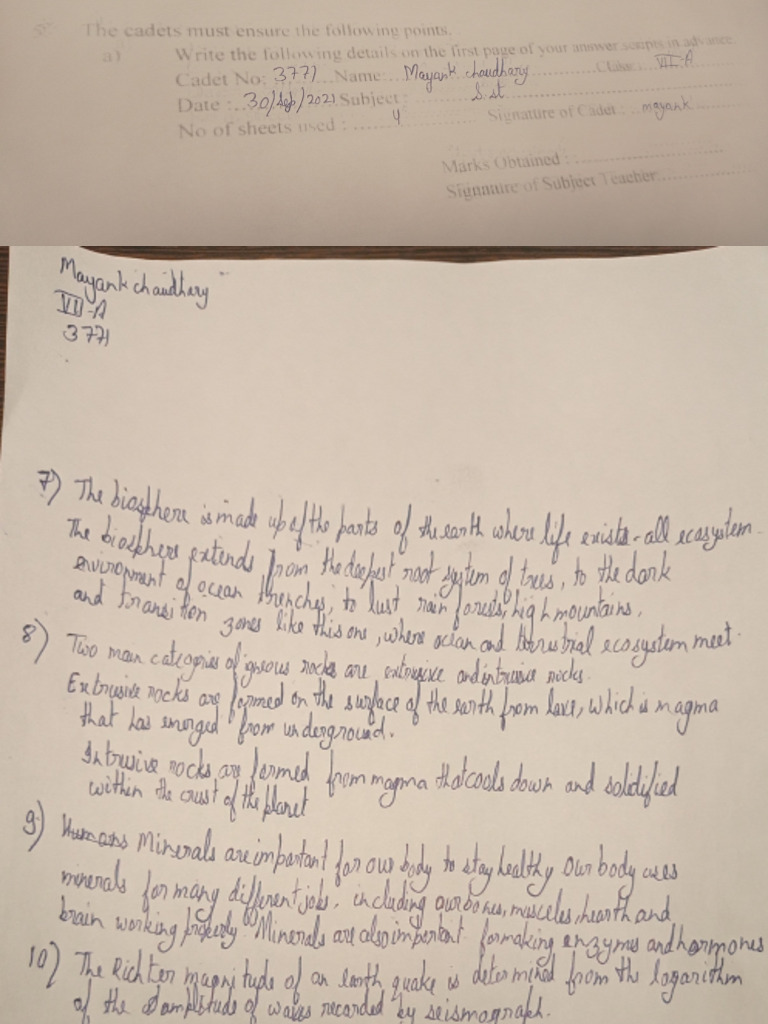 5. The cadets must ensure the following points.
a) Write the following details on the first page of your answer scripts in advance.
Cadet No: 3771 Name: Mayank chaudhary Class: VII-A
Date: 30/Sep/2021 Subject: S.st
No of sheets used: 4 Signature of Cadet: mayank
Marks Obtained:
Signature of Subject Teacher:
Mayank chaudhary
VII-A
3771
7) The biosphere is made up of the parts of the earth where life exists - all ecosystem.
The biosphere extends from the deepest root system of trees, to the dark
environment of ocean trenches, to lust rain forests, high mountains,
and transition zones like this one, where ocean and terrustrial ecosystem meet.
8) Two main categories of igneous rocks are extrusive and intrusive rocks.
Extrusive rocks are formed on the surface of the earth from lava, which is magma
that has emerged from underground.
Intrusive rocks are formed from magma that cools down and solidified
within the crust of the planet
9) Humans Minerals are important for our body to stay healthy Our body uses
minerals for many different jobs, including our bones, musceles, hearth and
brain working properly Minerals are also important for making enzymes and hormones
10) The Richter magnitude of an earth quake is determined from the logarithm
of the amplitude of waves recorded by seismograph.